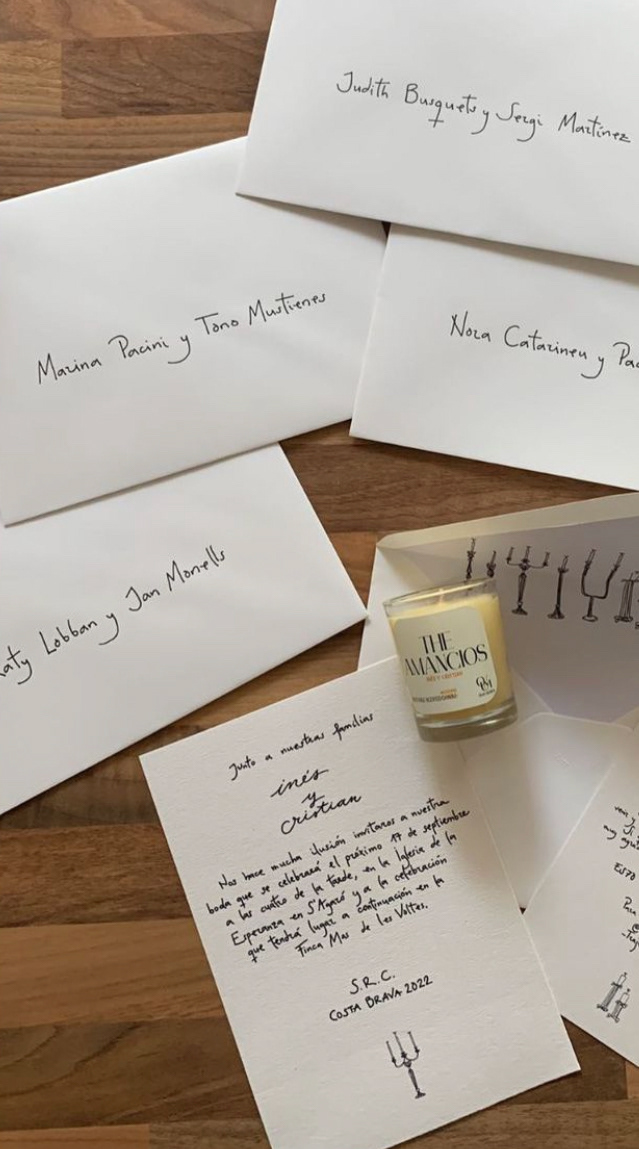 Judith Busquets y Sergi Martínez
Marina Pacini y Tono Mustienes
Nora Catarineu y
Lobban y Jan Monells
THE
AMANCIOS
INÉS Y CRISTIAN
Junto a nuestras familias
inés
y
cristian
Nos hace mucha ilusión invitaros a nuestra
boda que se celebrará el próximo 17 de septiembre
a las cuatro de la tarde, en la Iglesia de la
Esperanza en S'Agaró y a la celebración
que tendrá lugar a continuación en la
Finca Mas de les Voltes.
S.R.C.
COSTA BRAVA 2022